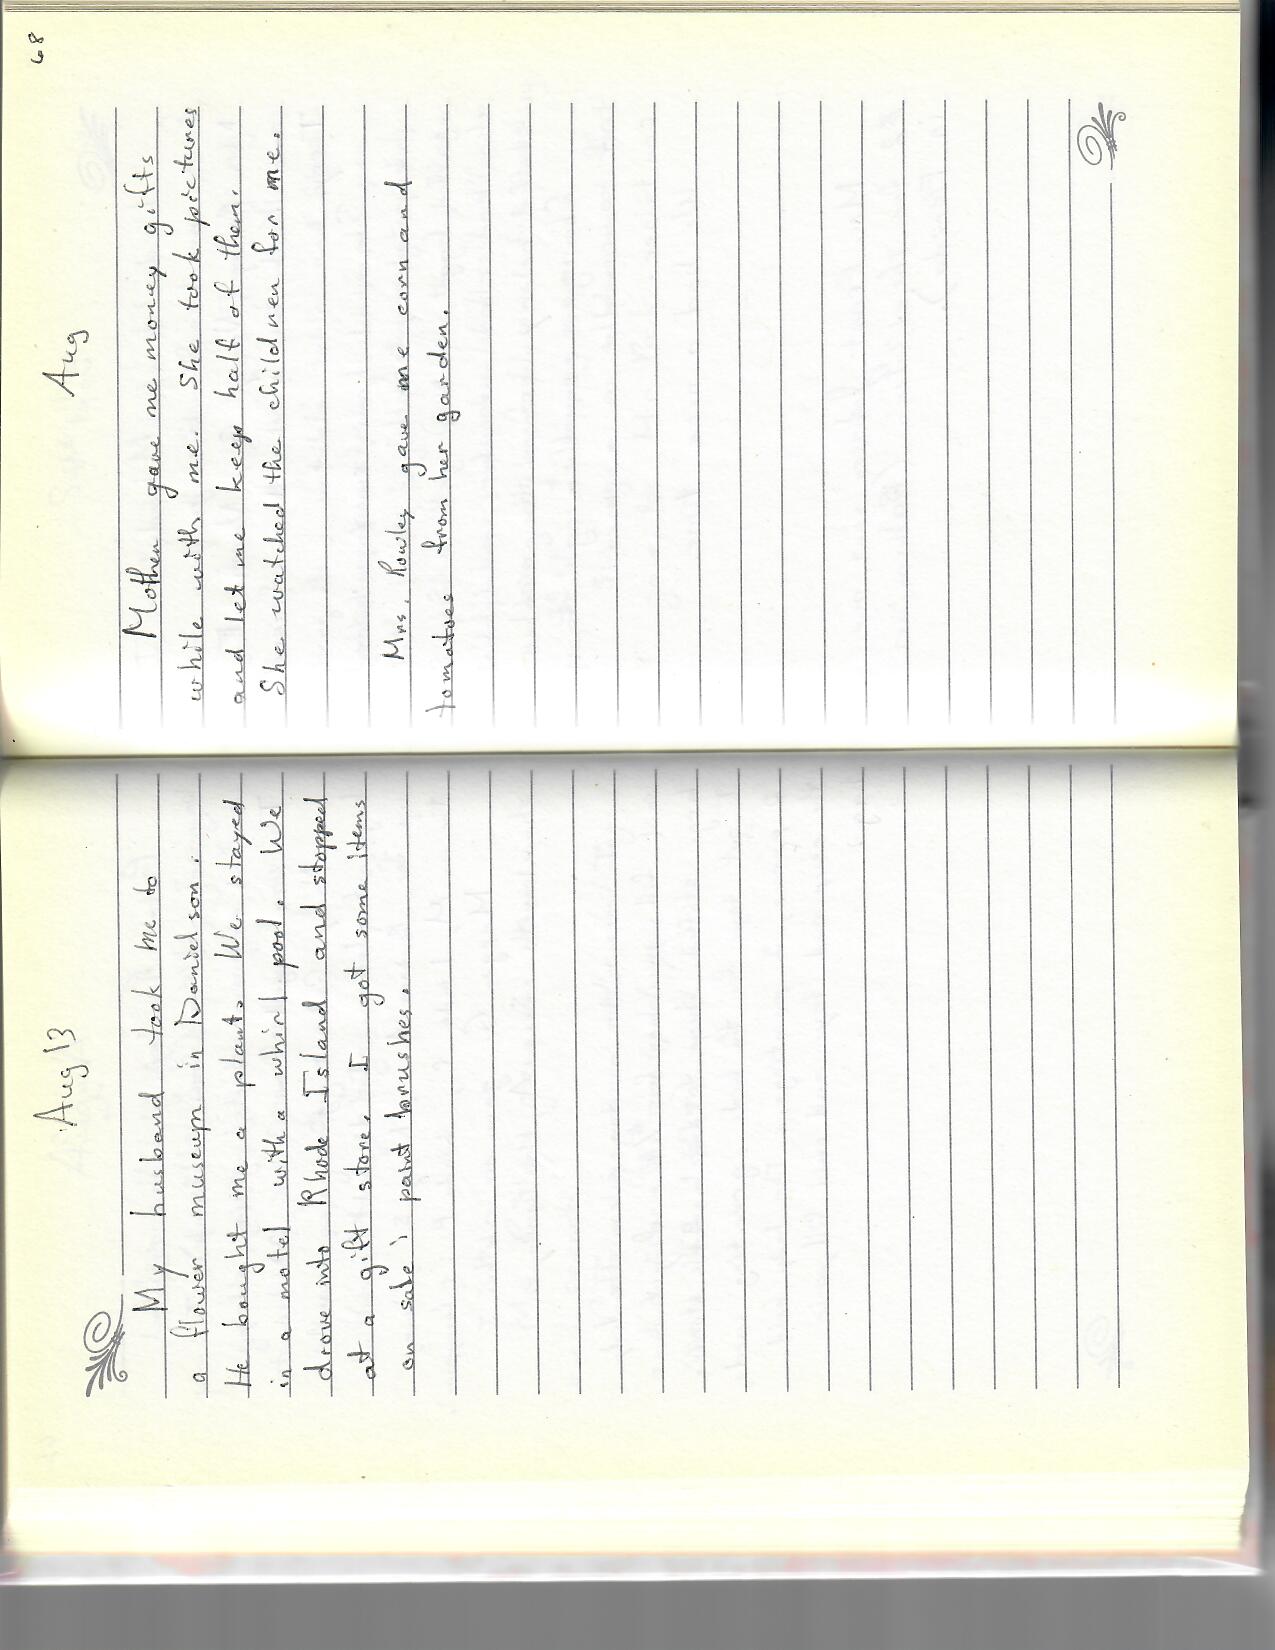 Aug 13
My husband took me to
a flower museum in Danielson.
He bought me a plant. We stayed
in a motel with a whirl pool. We
drove into Rhode Island and stopped
at a gift store. I got some items
on sale; paint brushes.
68
Aug
Mother gave me money gifts
while with me. She took pictures
and let me keep half of them.
She watched the children for me.
Mrs. Rowley gave me corn and
tomatoes from her garden.